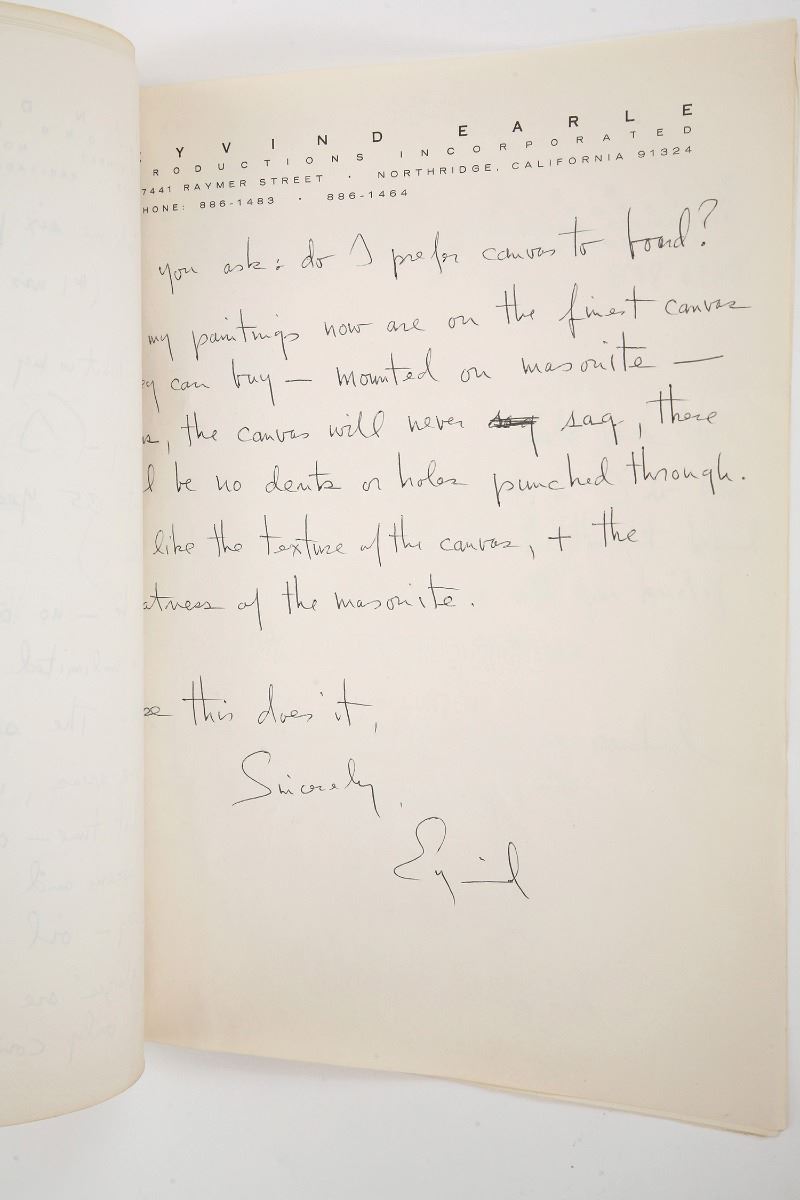 YVIND EARLE
RODUCTIONS INCORPORATED
7441 RAYMER STREET · NORTHRIDGE, CALIFORNIA 91324
HONE: 886-1483 · 886-1464
you ask: do I prefer canvas to board?
my paintings now are on the finest canvas
can buy — mounted on masonite —
, the canvas will never sag, there
l be no dents or holes punched through.
like the texture of the canvas, + the
atness of the masonite.
this does it,
Sincerely,
Eyvind